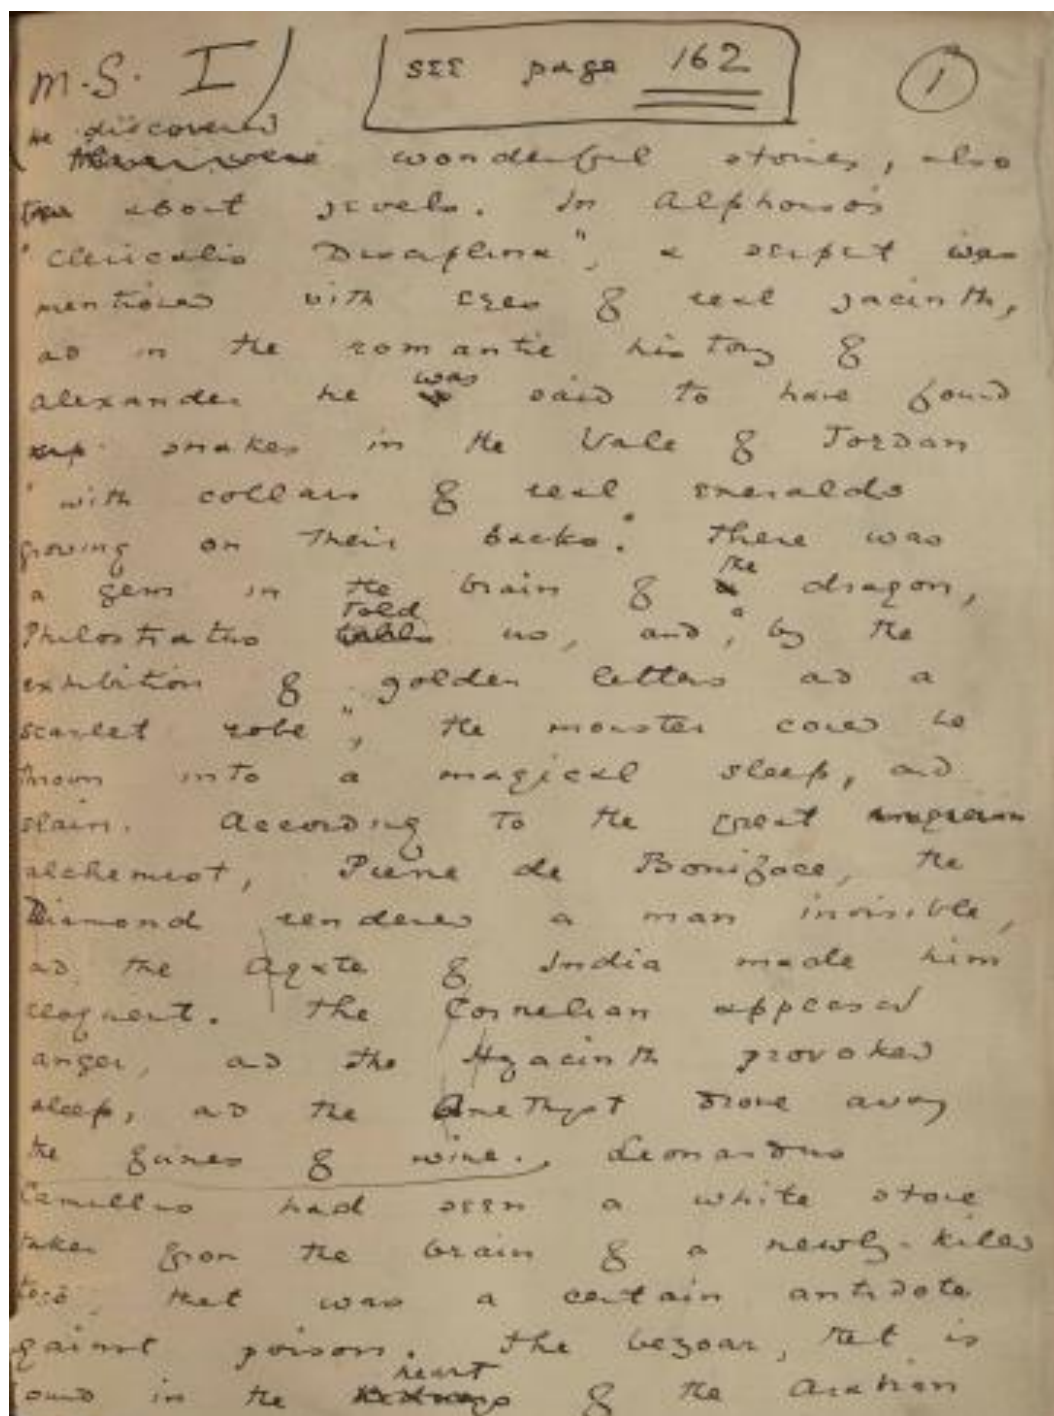 M.S. I
SEE page 162
1
He discovered
wonderful stories, also
about jewels. In Alphonso's
"Clericalis Disciplina", a serpent was
mentioned with eyes of real jacinth,
and in the romantic history of
was
Alexander he said to have found
snakes in the Vale of Jordan
"with collars of real emeralds
growing on their backs." There was
the
a gem in the brain of dragon,
told
Philostratus us, and, "by the
exhibition of golden letters and a
scarlet robe", the monster could be
thrown into a magical sleep, and
slain. According to the great
alchemist, Pierre de Boniface, the
Diamond rendered a man invisible,
and the Agate of India made him
eloquent. The Cornelian appeased
anger, and the Hyacinth provoked
sleep, and the Amethyst drove away
the fumes of wine. Leonardus
Camillus had seen a white stone
taken from the brain of a newly-killed
toad, that was a certain antidote
against poison. The bezoar, that is
heart
found in the of the Arabian